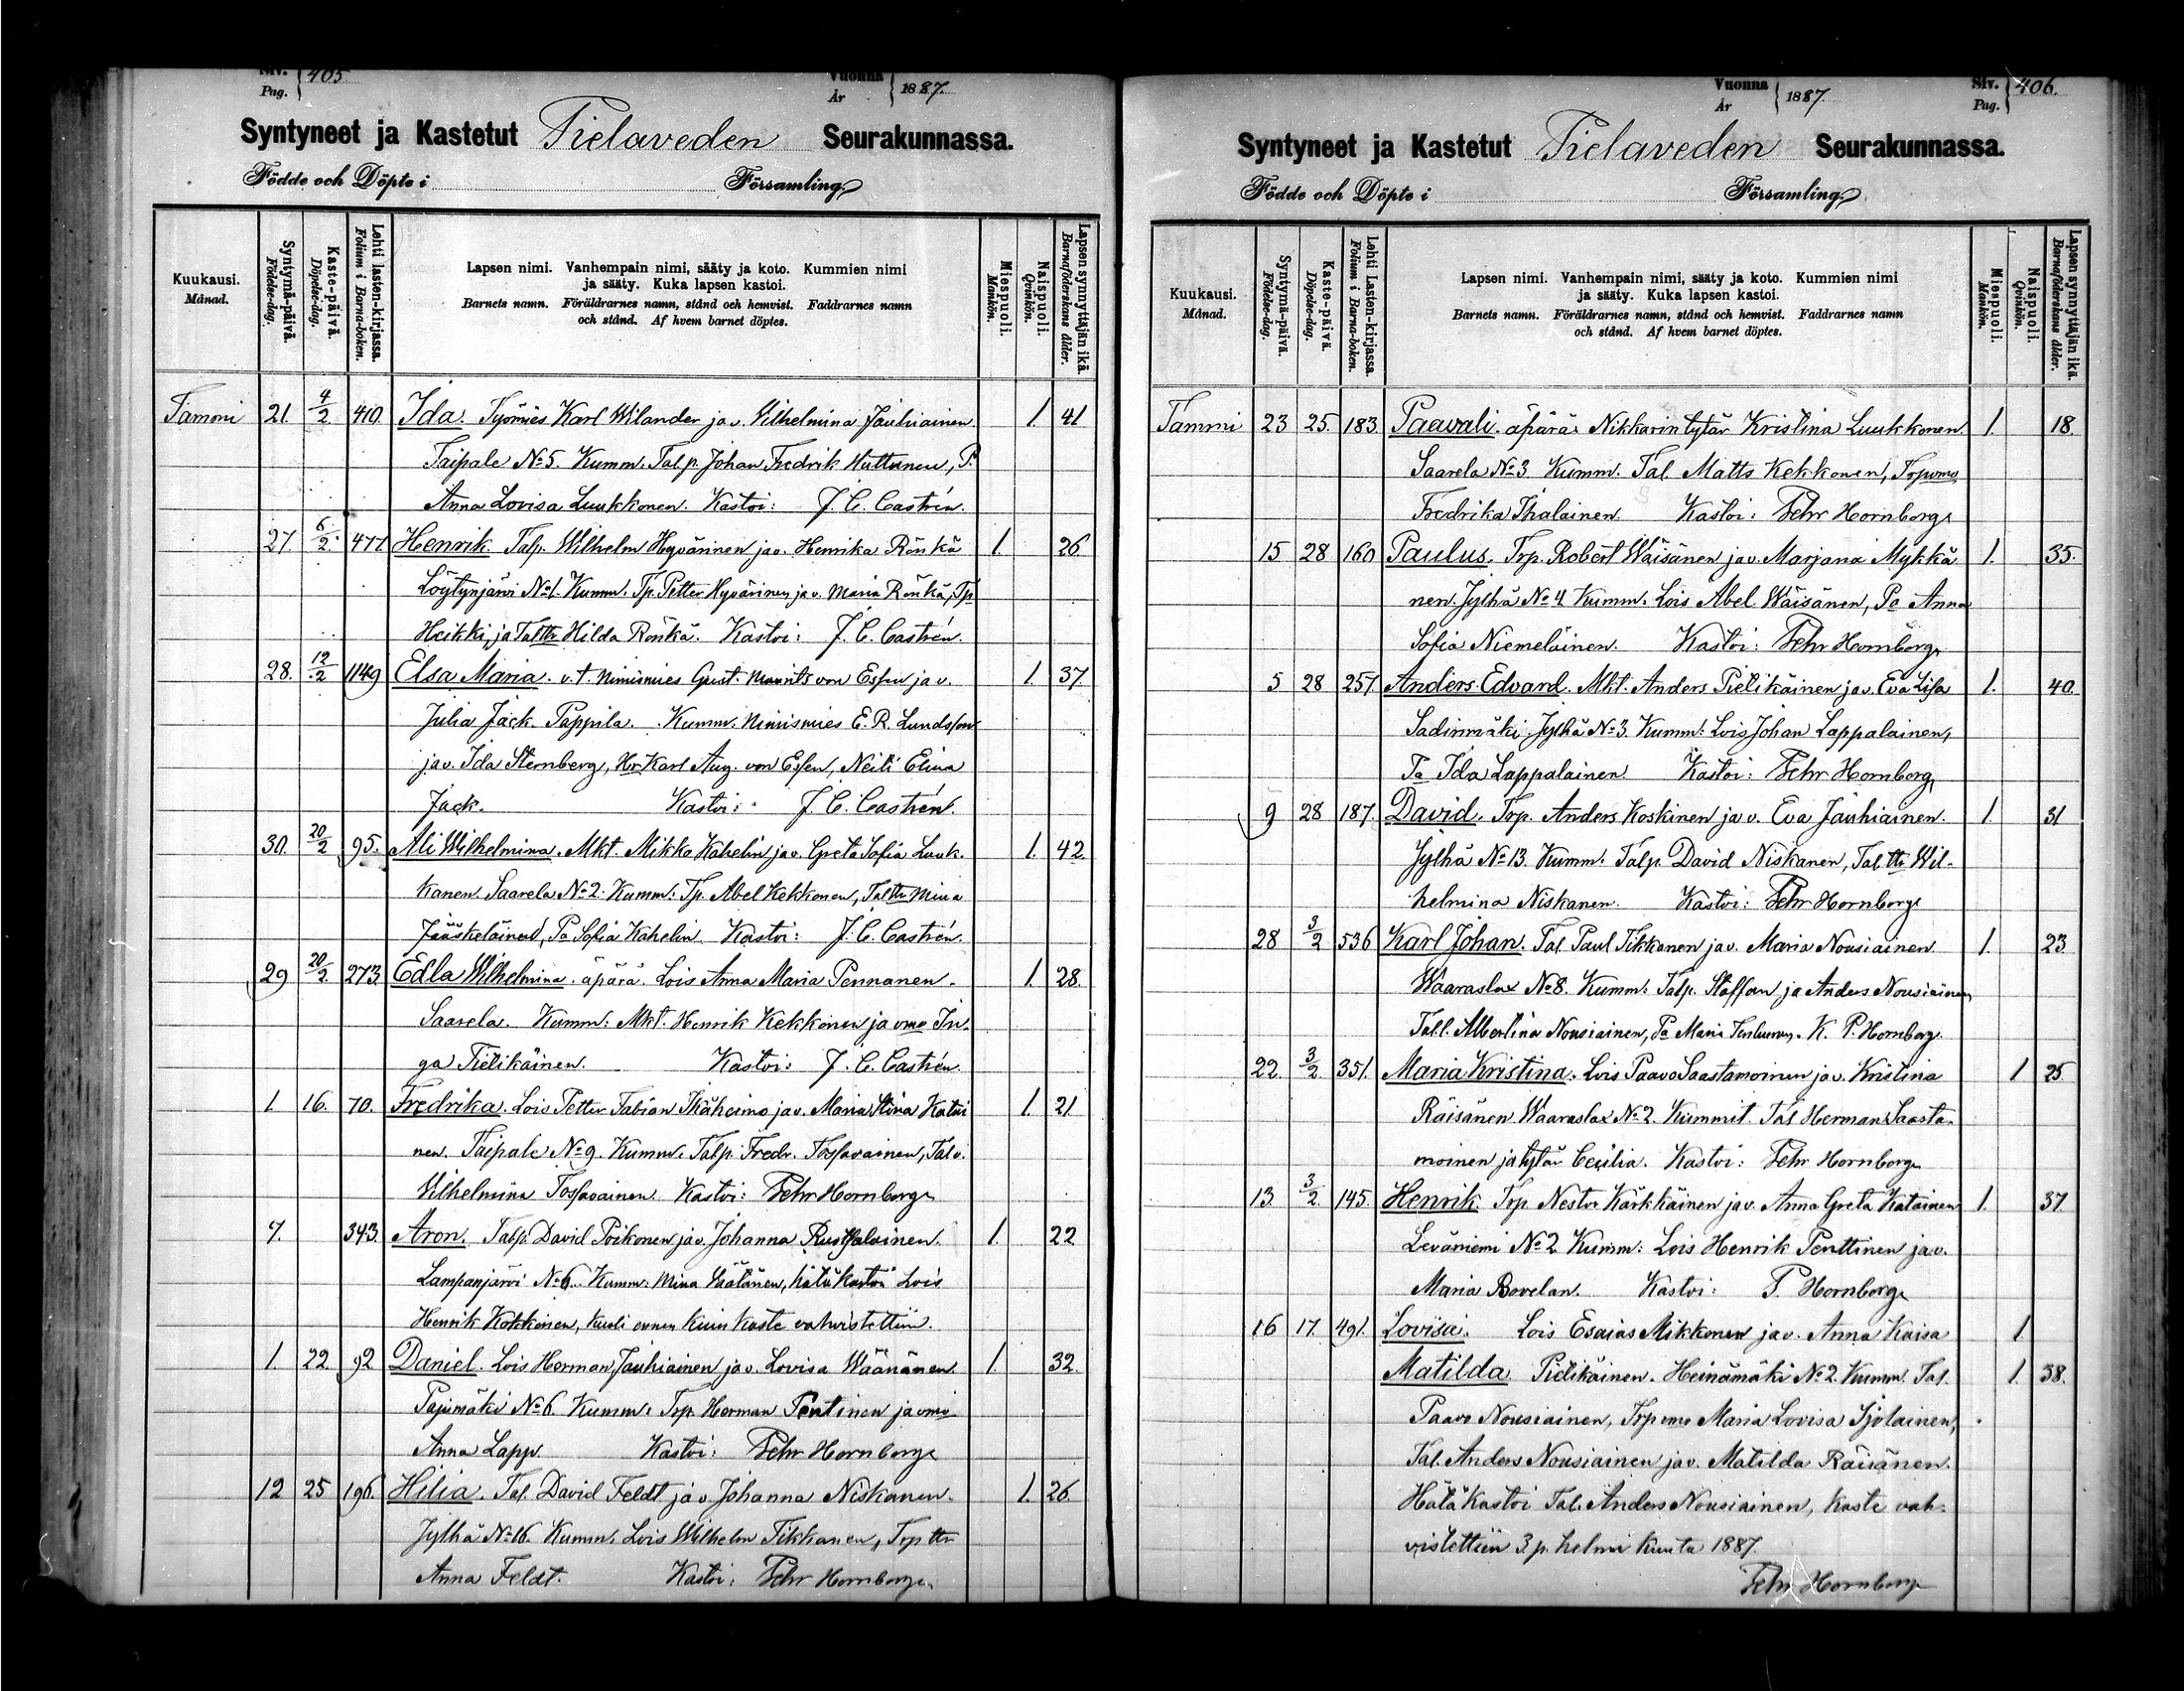 Siv. Pag. 405
Vuonna År 1887.
Syntyneet ja Kastetut Pielaveden Seurakunnassa.
Födde och Döpte i Församling.
Kuukausi. Månad.
Syntymä-päivä. Födelse-dag.
Kaste-päivä. Döpelse-dag.
Lehti lasten-kirjassa. Folium i Barna-boken.
Lapsen nimi. Vanhempain nimi, sääty ja koto. Kummien nimi
ja sääty. Kuka lapsen kastoi.
Barnets namn. Föräldrarnes namn, stånd och hemvist. Faddrarnes namn
och stånd. Af hvem barnet döptes.
Miespuoli. Mankön.
Naispuoli. Qvinkön.
Lapsen synnyttäjän ikä. Barnaföderskans ålder.
Tammi 21. 4/2 410. Ida. Työmies Karl Wilander ja v. Vilhelmina Jauhiainen. 1. 41
Taipale No 5. Kumm. Talp. Johan Fredrik Huttunen, P.
Anna Lovisa Luukkonen. Kastoi: J. C. Castrén.
27. 6/2. 477 Henrik Talp. Wilhelm Hyvärinen ja v. Henrika Rönkä 1. 26
Löytynjärvi No 1. Kumm. Tp. Petter Hyvärinen ja v. Maria Rönkä, Tp
Heikki, ja Taltr Hilda Rönkä. Kastoi: J. C. Castrén.
28. 12/2 1149 Elsa Maria. v. t. Nimismies Gust. Maurits von Essen ja v. 1. 37
Julia Jack. Pappila. Kumm. Nimismies E. R. Lundsson
ja v. Ida Sternberg, Hr. Karl Aug. von Essen, Neiti Elina
Jack. Kastoi: J. C. Castrén.
30. 20/2 95. Ali Wilhelmina. Mkt. Mikko Kahelin ja v. Greta Sofia Luuk- 1. 42
kanen. Saarela No 2. Kumm: Tp. Abel Kekkonen, Taltr Mina
Jääskeläinen, Pa Sofia Kahelin. Kastoi: J. C. Castrén.
29 20/2. 273. Edla Wilhelmina. äpärä. Lois Anna Maria Pennanen. 1. 28.
Saarela. Kumm: Mkt. Henrik Kekkonen ja vmo In-
ga Pielikäinen. Kastoi: J. C. Castrén.
1. 16. 70. Fredrika. Lois Petter Fabian Ikäheimo ja v. Maria Stina Katai 1. 21
nen. Taipale No 9. Kumm. Talp. Fredr. Tossavainen, Tal v.
Vilhelmina Tossavainen. Kastoi: Fehr Hornborg
7. 343. Aron. Talp. David Poikonen ja v. Johanna Ruotsalainen. 1. 22
Lampanjärvi No 6. Kumm: Mina Väätänen, hätäkastoi Lois
Henrik Kokkonen, kuoli ennen kuin kaste vahvistettiin.
1. 22. 92 Daniel. Lois Herman Jauhiainen ja v. Lovisa Wäänänen. 1. 32.
Pajumäki No 6. Kumm: Trp. Herman Pentinen ja vmo
Anna Lapp. Kastoi: Fehr Hornborg
12 25 196. Hilia. Tal. David Feldt ja v. Johanna Niskanen. 1. 26.
Jylhä No 16. Kumm. Lois Wilhelm Tikkanen, Trp ttr
Anna Feldt. Kastoi: Fehr Hornborg.
Vuonna År 1887.
Siv. Pag. 406.
Syntyneet ja Kastetut Pielaveden Seurakunnassa.
Födde och Döpte i Församling.
Kuukausi. Månad.
Syntymä-päivä. Födelse-dag.
Kaste-päivä. Döpelse-dag.
Lehti Lasten-kirjassa. Folium i Barna-boken.
Lapsen nimi. Vanhempain nimi, sääty ja koto. Kummien nimi
ja sääty. Kuka lapsen kastoi.
Barnets namn. Föräldrarnes namn, stånd och hemvist. Faddrarnes namn
och stånd. Af hvem barnet döptes.
Miespuoli. Mankön.
Naispuoli. Qvinkön.
Lapsen synnyttäjän ikä. Barnaföderskans ålder.
Tammi 23 25. 183. Paavali. äpärä: Nikkarintytär Kristina Luukkonen. 1. 18.
Saarela No 3 Kumm. Tal. Matts Kekkonen, Trpvmo
Fredrika Ihalainen. Kastoi: Fehr Hornborg
15 28 160 Paulus. Trp. Robert Wäisänen ja v. Marjana Mykkä 1. 35.
nen. Jylhä No 4 Kumm. Lois Abel Wäisänen, Pa Anna
Sofia Niemeläinen. Kastoi: Fehr Hornborg
5 28 257. Anders Edvard. Mkt. Anders Pielikäinen ja v. Eva Lisa 1. 40.
Sadinmäki Jylhä No 3. Kumm: Lois Johan Lappalainen,
Pa Ida Lappalainen Kastoi: Fehr Hornborg
9 28 187. David. Trp. Anders Koskinen ja v. Eva Jauhiainen. 1. 31
Jylhä No 13. Kumm. Talp. David Niskanen, Tal. ttr Wil-
helmina Niskanen. Kastoi: Fehr Hornborg
28 3/2 536 Karl Johan. Tal. Paul Tikkanen ja v. Maria Nousiainen. 1. 23.
Waaraslax No 8. Kumm: Talp. Staffan, ja Anders Nousiainen,
Tal. l. Albertina Nousiainen, Pa Maria. K. P. Hornborg.
22. 3/2. 351. Maria Kristina. Lois Paavo Saastamoinen ja v. Kristina 1 25
Räisänen Waaraslax No 2. Kummit. Tal Herman Saasta-
moinen ja tytär Cecilia. Kastoi: Fehr Hornborg
13. 3/2. 145. Henrik. Trp. Nestor Kärkkäinen ja v. Anna Greta Katainen 1. 37
Leväniemi No 2 Kumm: Lois Henrik Penttinen ja v.
Maria Bovelan. Kastoi: P. Hornborg
16 17. 491. Lovisa. Lois Esaias Mikkonen ja v. Anna Kaisa 1.
Matilda Pielikäinen. Heinämäki No 2. Kumm. Tal. 1. 38.
Paavo Nousiainen, Trp vmo Maria Lovisa Sjölainen,
Tal. Anders Nousiainen ja v. Matilda Räisänen.
Hätäkastoi Tal. Anders Nousiainen, kaste vah-
vistettiin 3 p. helmi kuuta 1887.
Fehr Hornborg